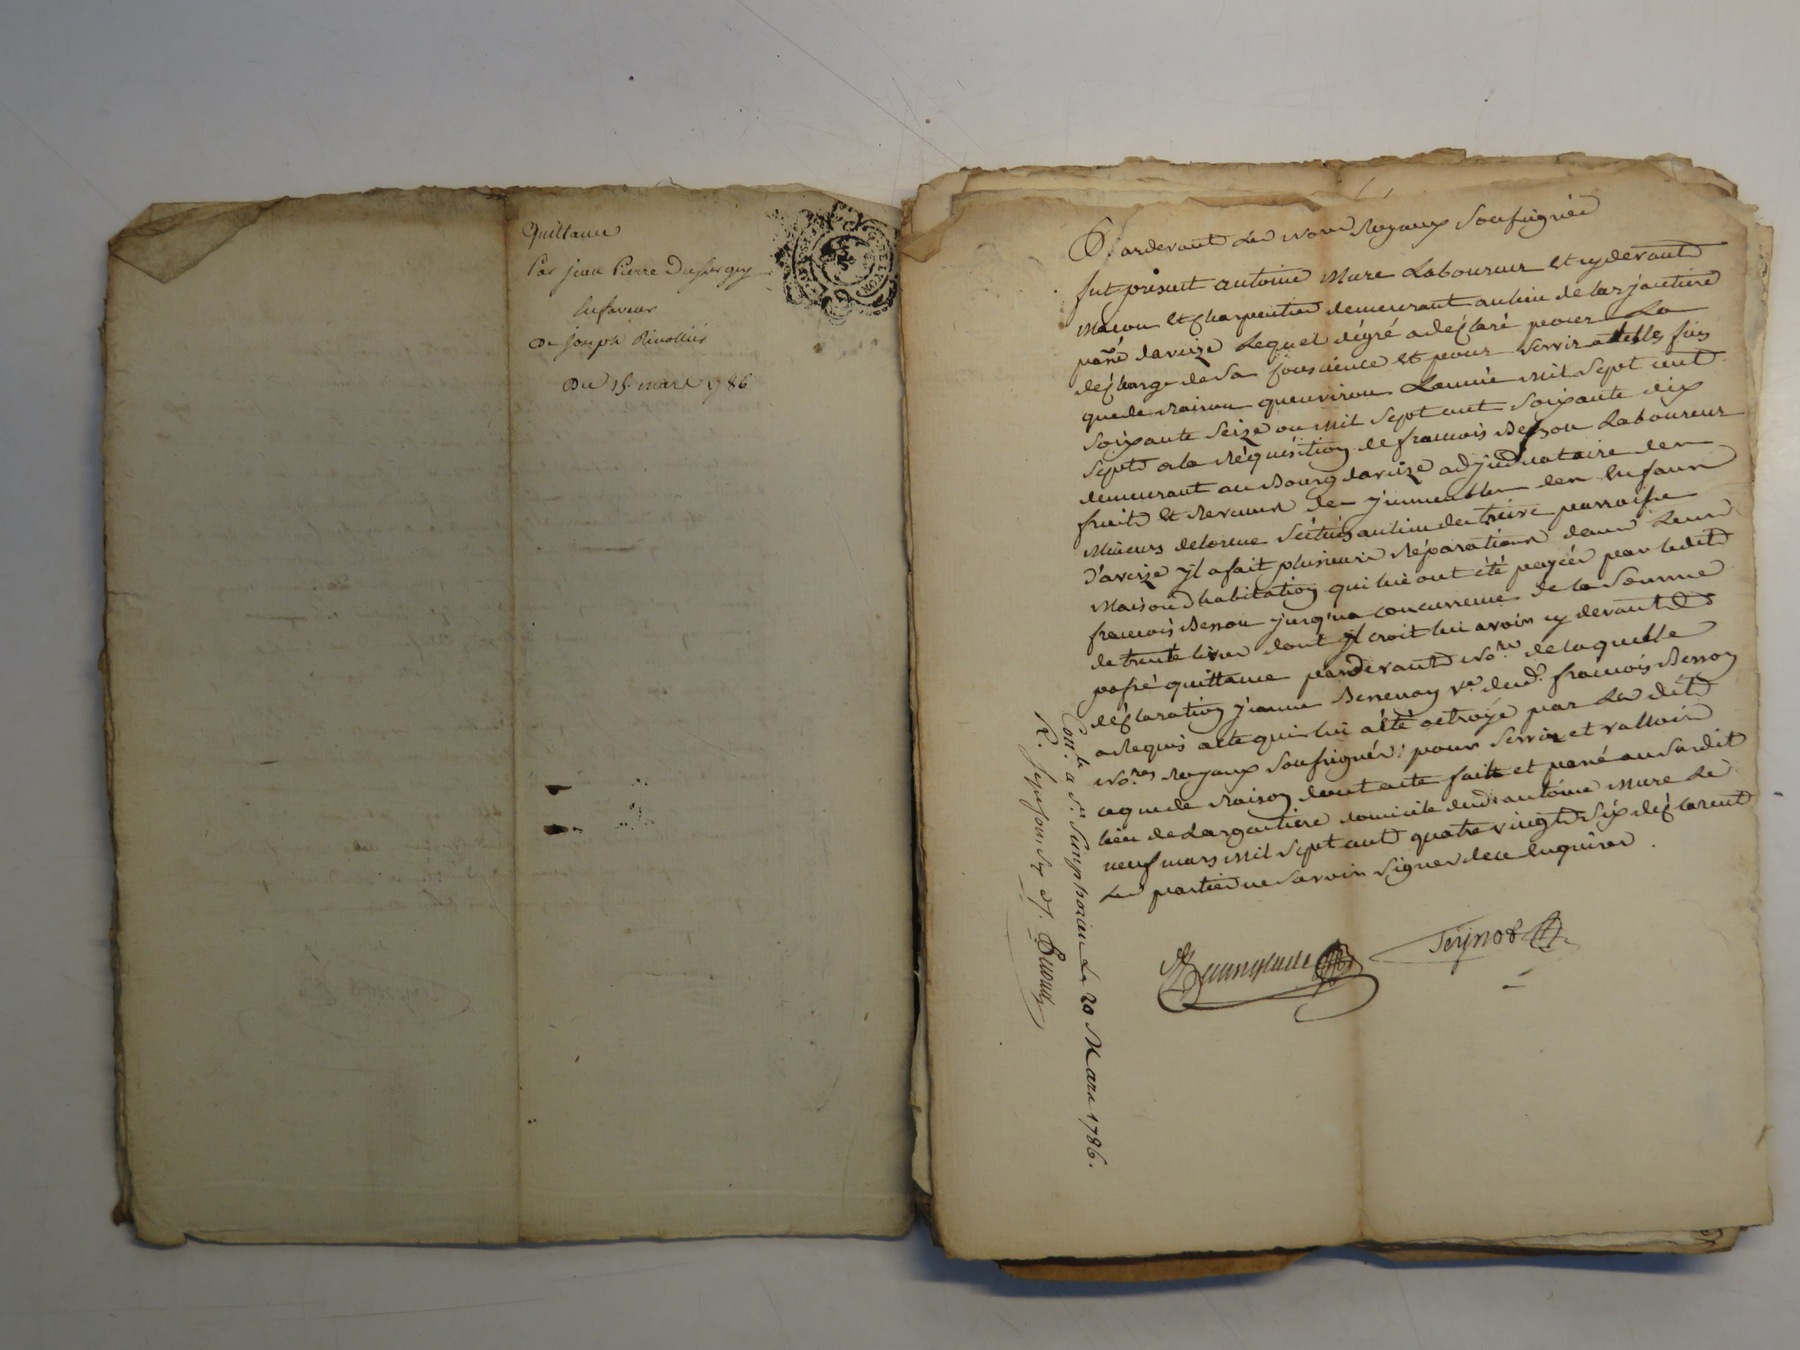 Quittance
Par jean Pierre Dufurgey
En faveur
De joseph Rivollier
Du 15 mars 1786
Pardevant les Nores Royaux Soussignés
fut présent antoine Mure Laboureur et cydevant
Macon et charpentier demeurant au lieu de larjantiere
parre daveize Lequel dégré a déclaré pour La
décharge de sa conscience et pour servir a telles fins
que de Raison quenviron Lannée Mil Sept cent
soixante seize ou Mil Sept cent soixante dix
Sept a la Réquisition de francois Besson Laboureur
demeurant au Bourg daveize adjudicataire des
fruits et Revenus des jmmeubles des Enfans
Mineurs delorme Scitués au lieu du paroisse
d'aveize jl a fait plusieurs Réparations dans Leur
Maison dhabitation qui lui ont été payées par ledit
francois Besson jusqu'a concurrence de la Somme
de trente livres dont jl croit lui avoir cy devant
passé quittance pardevant Nore de laquelle
déclaration jeanne Bessenay ve dud. francois Besson
a Requis acte qui lui a été octroyé par Les dits
Nores Royaux Soussignés, pour servir et valloir
ce que de Raison dont acte fait et passé au Susdit
lieu de Largentiere domicile dud. antoine Mure Le
neuf mars Mil Sept cent quatre vingt Six déclarent
Les parties ne Savoir Signer de ce Enquises.
Teynot
Conlé a St Simphorien Le 20 Mars 1786.
R.